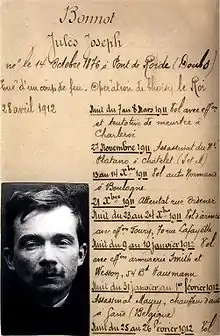 Bonnot
Jules Joseph
né le 14 Octobre 1876 à Pont de Roide (Doubs)
Tué d'un coup de feu. Opération de Choisy le Roi
28 avril 1912
Nuit du 7 au 8 Mars 1911 Vol avec effon
et tentative de meurtre à
Charleroi
27 Novembre 1911 Assassinat du
Platano à chatelet (S et M)
13 au 14 Xbre 1911 Vol auto Normann
à Boulogne
21 Xbre 1911 Attentat rue Ordener
Nuit du 23 au 24 Xbre 1911 Vol d'armes
avec effon Foury, 70 rue Lafayette
Nuit du 9 au 10 janvier 1912 Vol
avec effon armurerie Smith et
Wesson, 54 Bd Haussmann
Nuit du 31 janvier au 1er février 1912
Assassinat Mayry, chauffeur dans
à Gand (Belgique)
Nuit du 25 au 26 février 1912